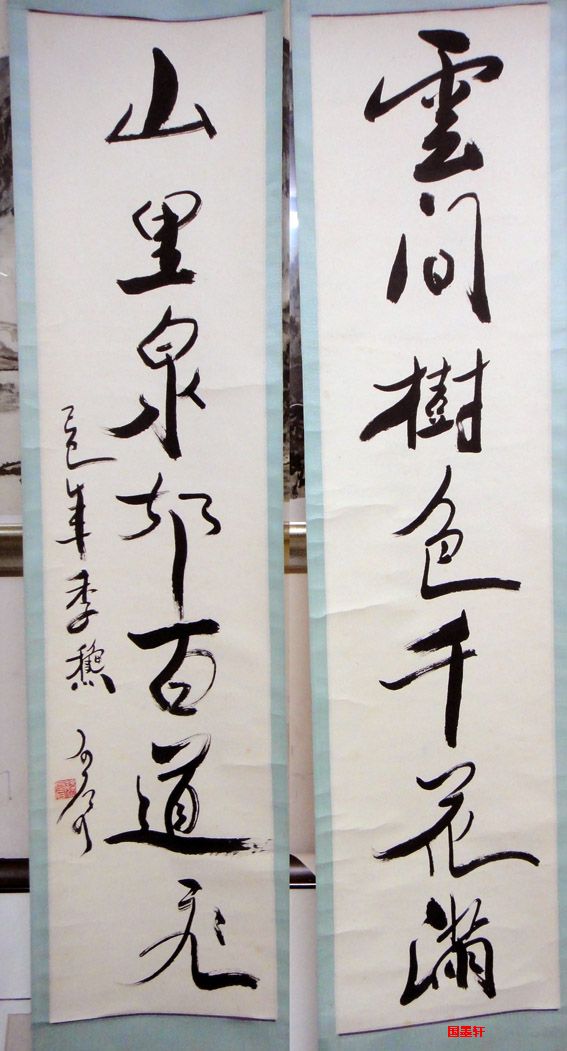 雲间樹色千花滿
山里泉聲百道飛
年季穐
国墨轩